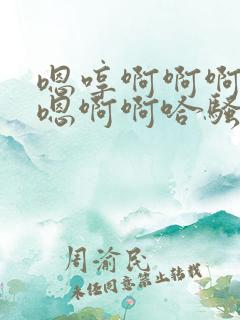 嗯哼啊啊啊
嗯啊啊哈骚
周渝民
未经同意禁止转载